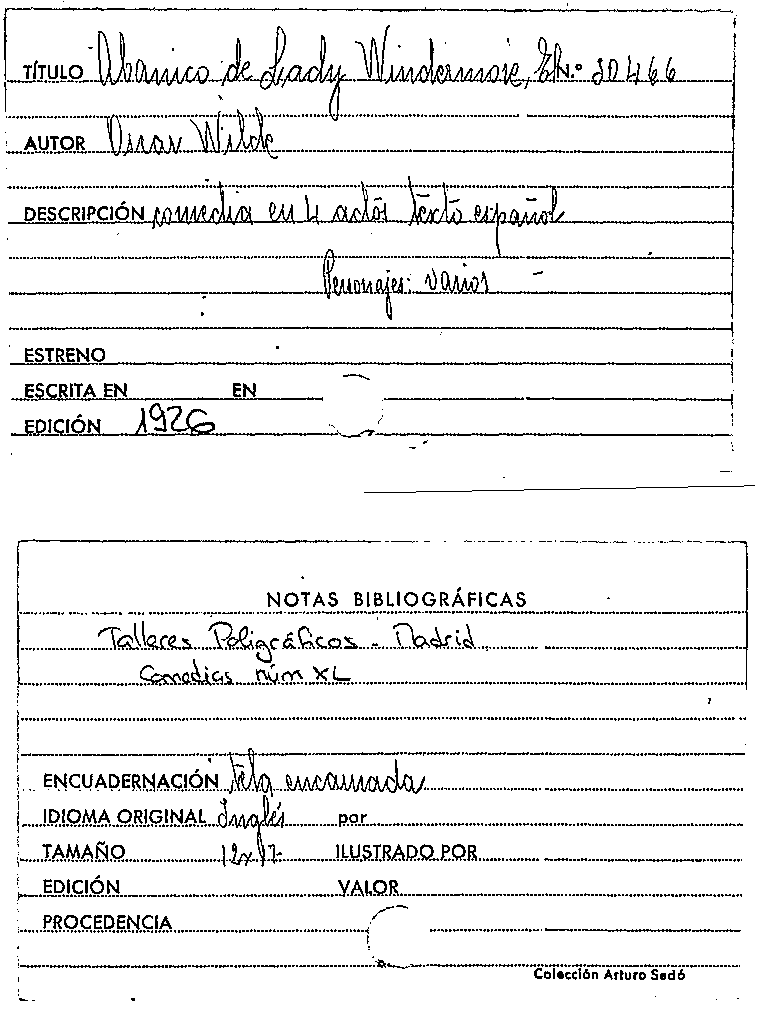 TÍTULO Abanico de Lady Windermoie, El n.º 30466
AUTOR Oscar Wilde
DESCRIPCIÓN comedia en 4 actos texto español
Personajes: varios -
ESTRENO
ESCRITA EN EN
EDICIÓN 1926
NOTAS BIBLIOGRÁFICAS
Talleres Poligráficos - Madrid
Comedias núm XL
ENCUADERNACIÓN tela encarnada
IDIOMA ORIGINAL Inglés por
TAMAÑO 12x17- ILUSTRADO POR
EDICIÓN VALOR
PROCEDENCIA
Colección Arturo Sedó